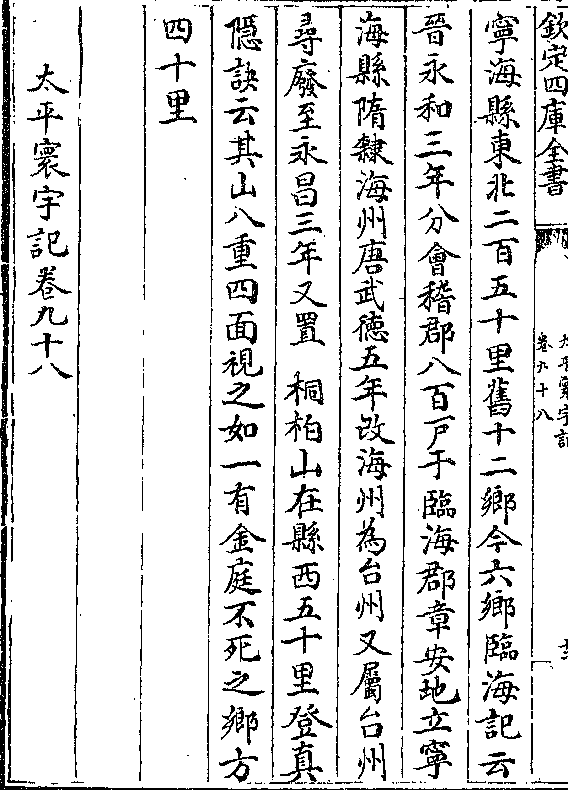 欽定四庫全書
太平寰宇記
卷九十八
寧海縣東北二百五十里舊十二鄉今六鄉臨海記云
晉永和三年分會稽郡八百戸于臨海郡章安地立寧
海縣隋隸海州唐武徳五年改海州為台州又屬台州
尋廢至永昌三年又置　桐柏山在縣西五十里登真
隠訣云其山八重四面視之如一有金庭不死之鄉方
四十里
太平寰宇記卷九十八